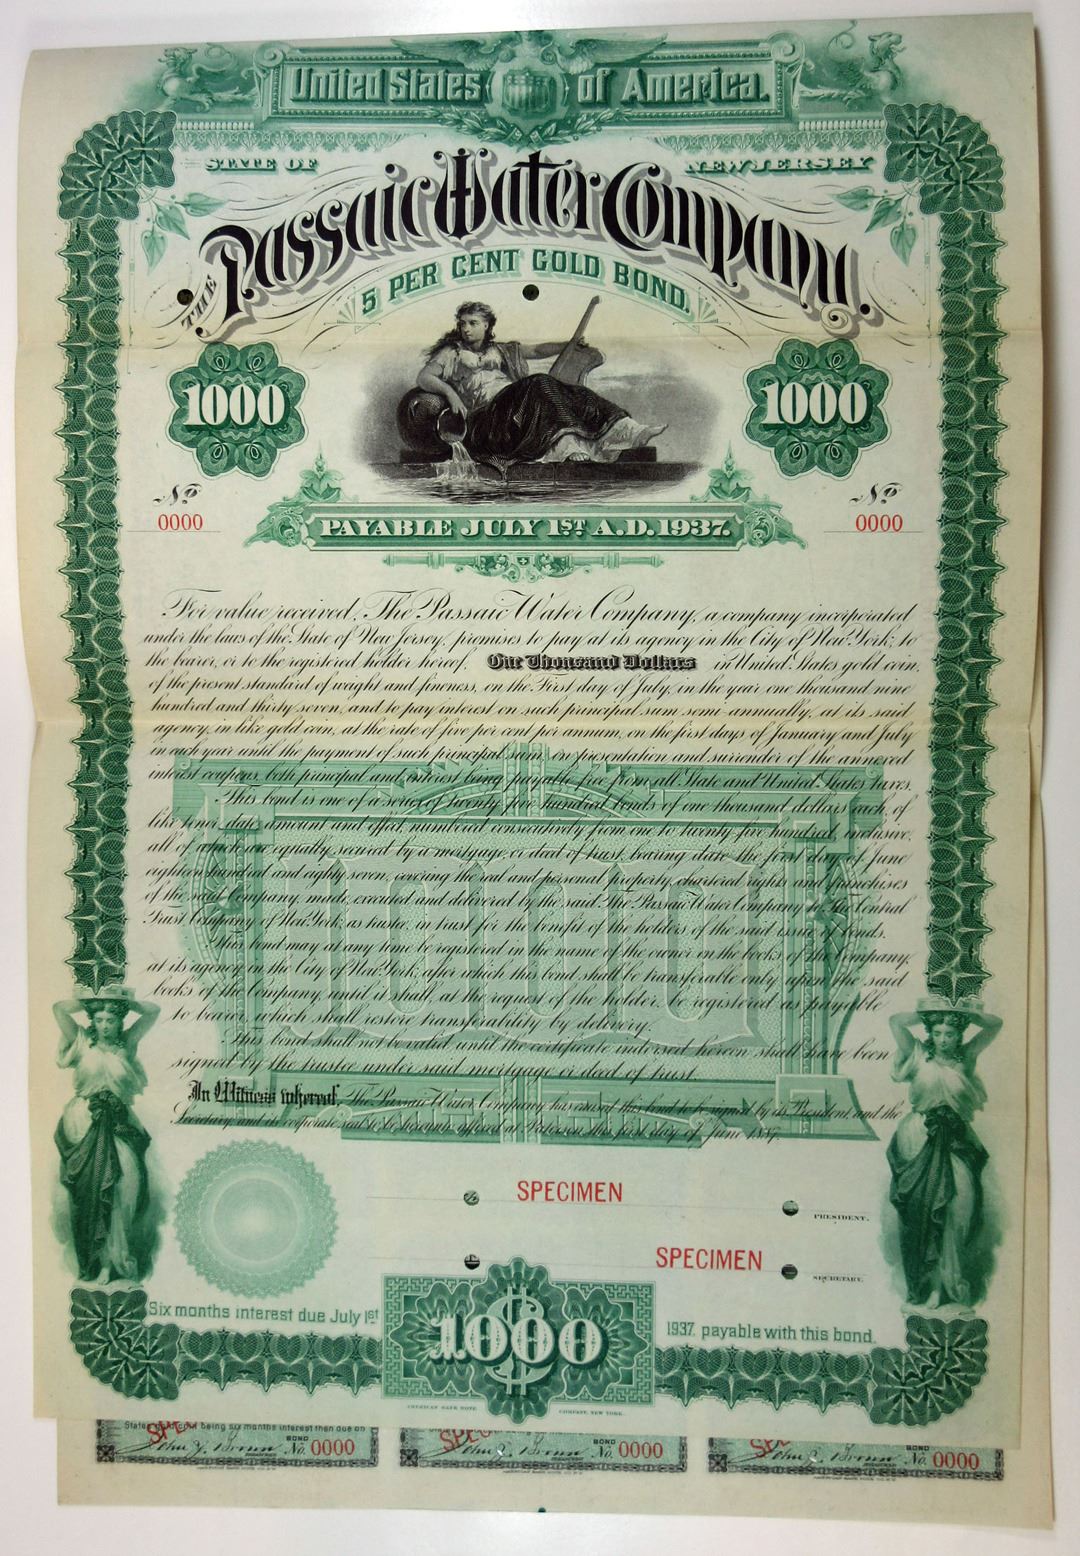 United States of America.
STATE OF NEW JERSEY
THE Passaic Water Company.
5 PER CENT GOLD BOND.
1000 1000
No. No.
0000 0000
PAYABLE JULY 1ST A.D. 1937.
For value received, The Passaic Water Company, a company incorporated
under the laws of the State of New Jersey, promises to pay at its agency in the City of New York, to
the bearer, or to the registered holder hereof, One Thousand Dollars in United States gold coin,
of the present standard of weight and fineness, on the First day of July, in the year one thousand nine
hundred and thirty seven, and to pay interest on such principal sum semi-annually, at its said
agency, in like gold coin, at the rate of five per cent per annum, on the first days of January and July
in each year until the payment of such principal sum, on presentation and surrender of the annexed
interest coupons, both principal and interest being payable free from all State and United States taxes.
This bond is one of a series of twenty five hundred bonds of one thousand dollars each, of
like tenor, date, amount and effect, numbered consecutively from one to twenty five hundred, inclusive,
all of which are equally secured by a mortgage, or deed of trust, bearing date the first day of June
eighteen hundred and eighty seven, covering the real and personal property, chartered rights and franchises
of the said Company, made, executed and delivered by the said The Passaic Water Company to The Central
Trust Company of New York as trustee, in trust for the benefit of the holders of the said issue of bonds.
This bond may at any time be registered in the name of the owner on the books of the Company,
at its agency in the City of New York, after which this bond shall be transferable only upon the said
books of the Company, until it shall, at the request of the holder, be registered as payable
to bearer, which shall restore transferability by delivery.
This bond shall not be valid until the certificate indorsed hereon shall have been
signed by the trustee under said mortgage or deed of trust.
In Witness whereof, The Passaic Water Company has caused this bond to be signed by its President and the
Secretary, and its corporate seal to be hereunto affixed at Paterson this first day of June 1887.
SPECIMEN
PRESIDENT.
SPECIMEN
SECRETARY.
Six months interest due July 1st 1937. payable with this bond.
$1000
AMERICAN BANK NOTE COMPANY, NEW YORK.
being six months interest then due on
BOND
No. 0000
BOND
No. 0000
BOND
No. 0000